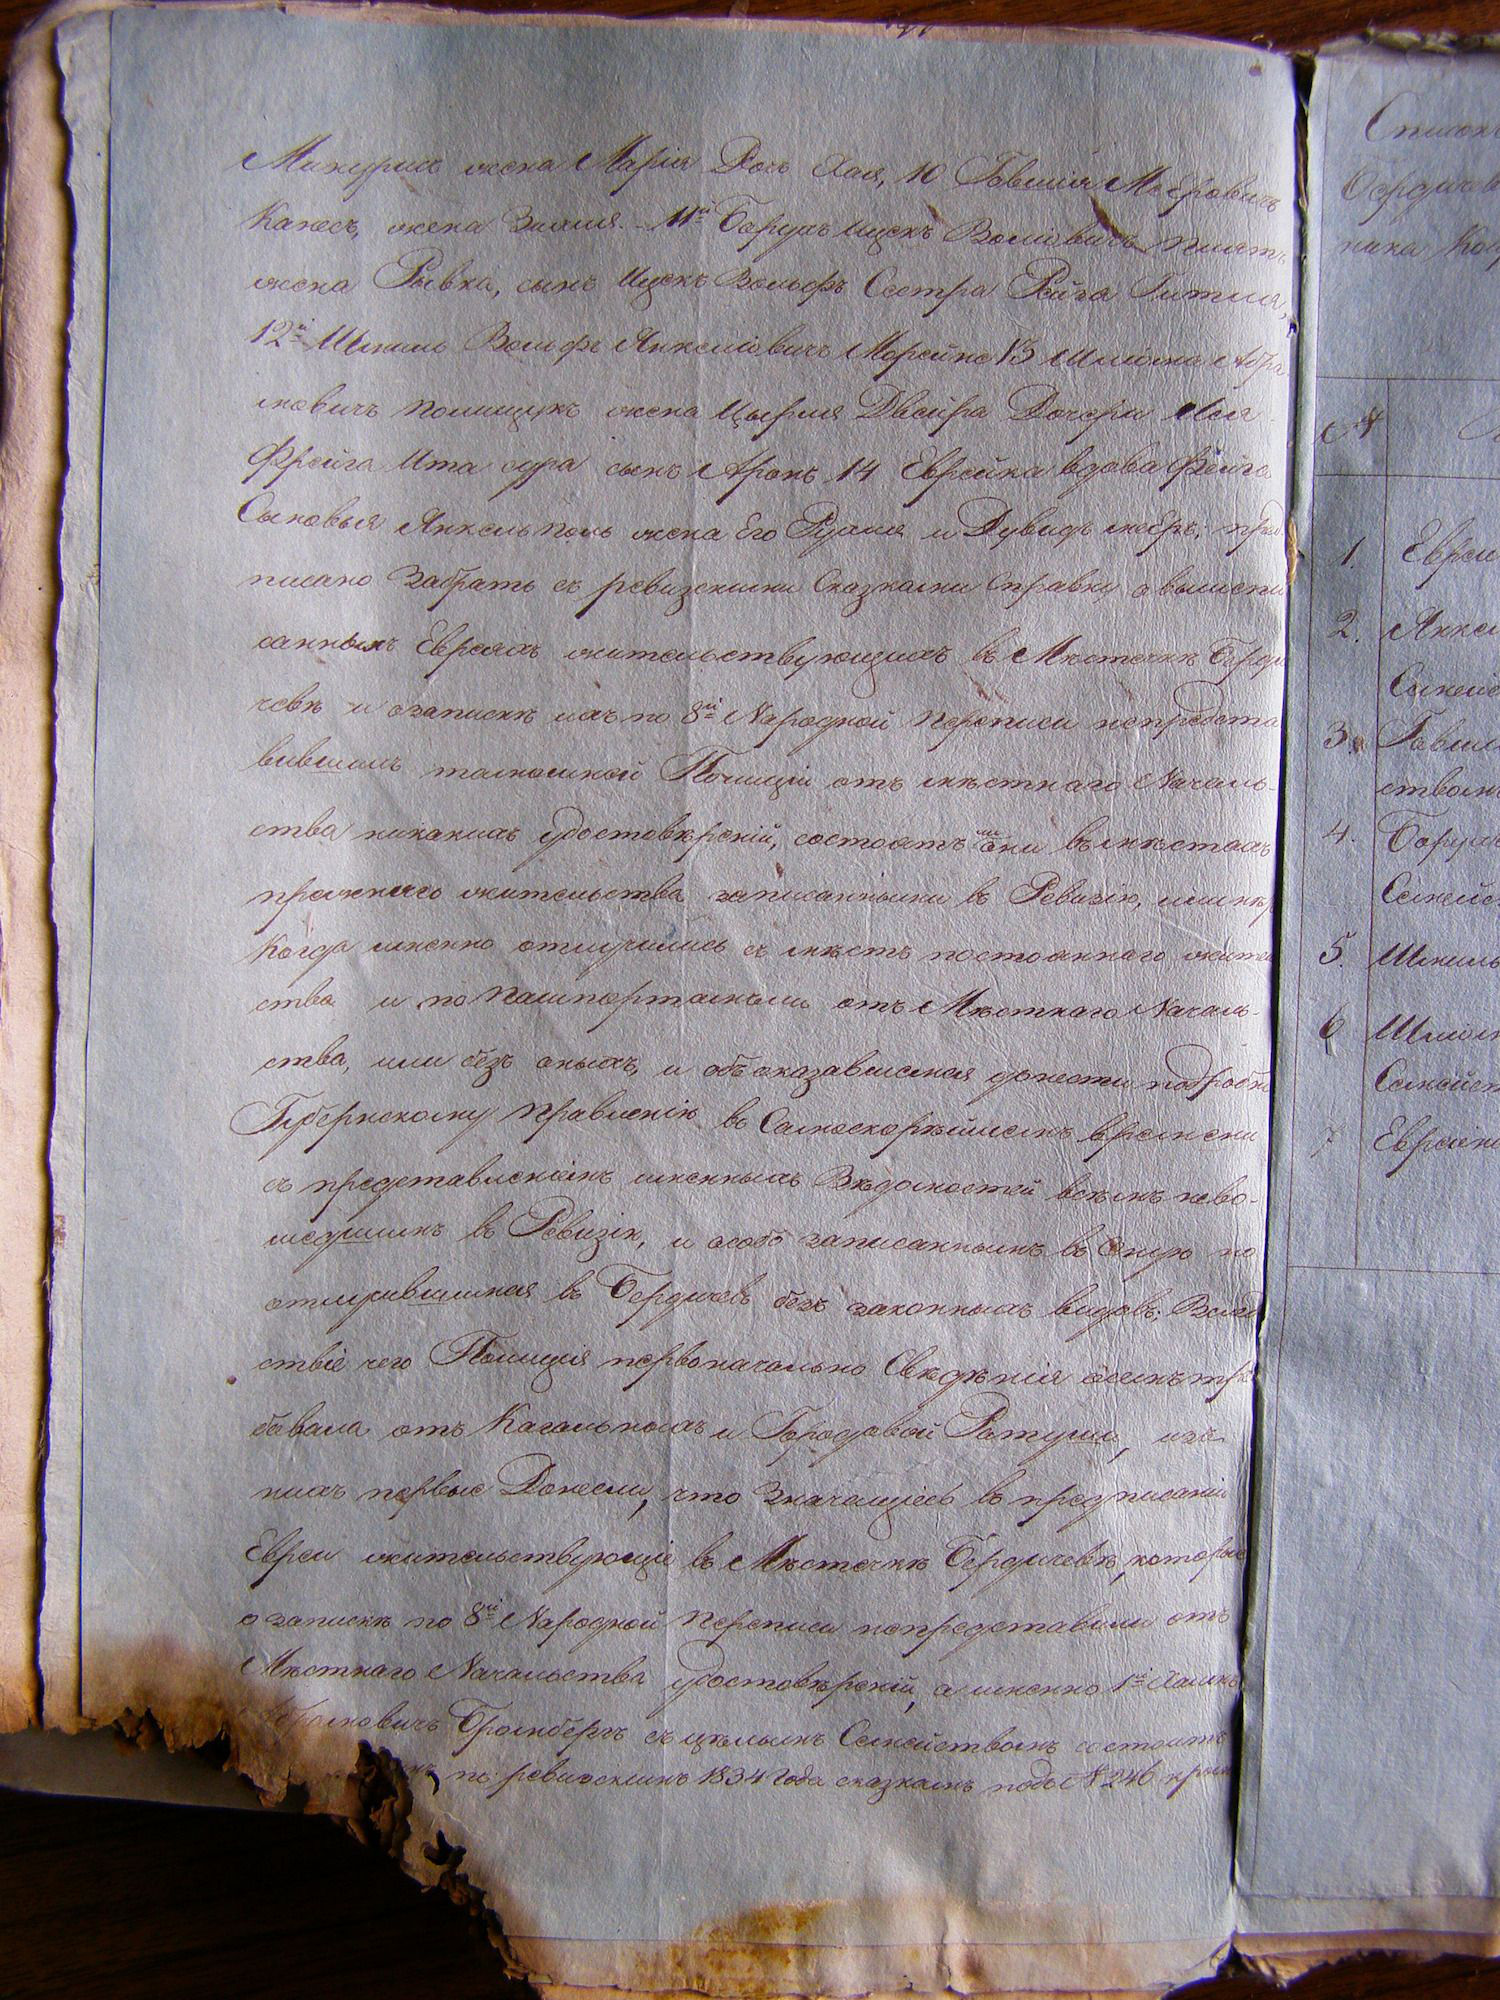 жена Марія Дочь Хая, 10 Говшія Мееровичъ
Канесъ, жена Злата. 11й Барухъ Ицекъ Волковичъ
жена Рывка, сынъ Ицекъ Вольфъ Сестра Рейза Гитля,
12й Шмиль Вольфъ Янкелевичъ Морейнс 13 Шлиома Абра
мовичъ Полищукъ жена Цырля Двейра Дочери Лея
Фрейга Ита сура сынъ Аронъ 14 Еврейка вдова Фейга
Сыновья Янкель жена Его и Дувидъ пред
писано забрать съ ревизскими Сказками справку о вышепи
санныхъ Евреяхъ жительствующихъ въ Местечкѣ Берди
чевѣ и о запискѣ ихъ по 8й Народной переписи непредста
вившихъ тамошней Полиціи отъ мѣстнаго Началь-
ства никакихъ удостовѣреній, состоятъ ли они въ мѣстахъ
прежняго жительства записанными въ Ревизію, или нѣтъ
Когда именно отлучились съ мѣстъ постояннаго жител
ства и по пашпортамъ ли отъ Мѣстнаго Началь-
ства, или безъ оныхъ, и объ оказавшемся донести подробно
Губернскому Правленію въ Самоскорѣйшемъ времени
съ представленіемъ именныхъ Вѣдомостей всѣмъ нево-
шедшимъ въ Ревизію, и особо записаннымъ въ Оную но
отлучившимся въ Бердичевъ безъ законныхъ видовъ; Вслед
ствіе чего Полиція первоначально Свѣденія о семъ тре
бовала отъ Кагальныхъ и Городовой Ратуши, изъ
нихъ первые Донесли, что Значащіеся въ предписаніи
Евреи жительствующіе въ Мѣстечкѣ Бердичевѣ, которые
о запискѣ по 8й Народной Переписи непредставили отъ
Мѣстнаго Начальства удостовѣреній, а именно 1й Хаимъ
Абрамовичъ Бромбергъ съ цѣлымъ Семействомъ состоитъ
по ревизскимъ 1834 Года сказкамъ подъ № 246
Список
Бердичев
№
1. Евреи
2. Янкел
Семей
3. Говши
ством
4. Барух
Семей
5. Шмиль
6 Шлиом
Семейст
7 Еврейк